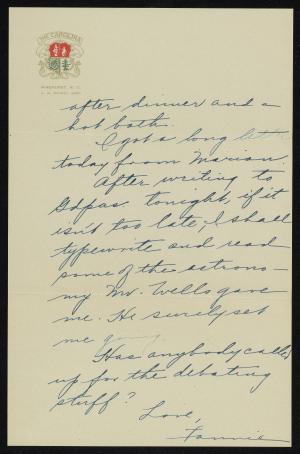 THE CAROLINA
PINEHURST, N. C.
after dinner and a
hot bath.
I got a long letter
today from Marian.
After writing to
Gdpas tonight, if it
isn't too late, I shall
typewrite and read
some of the astrono-
my Mr. Wells gave
me. He surely set
me going.
Has anybody called
up for the debating
stuff?
Love,
Fannie